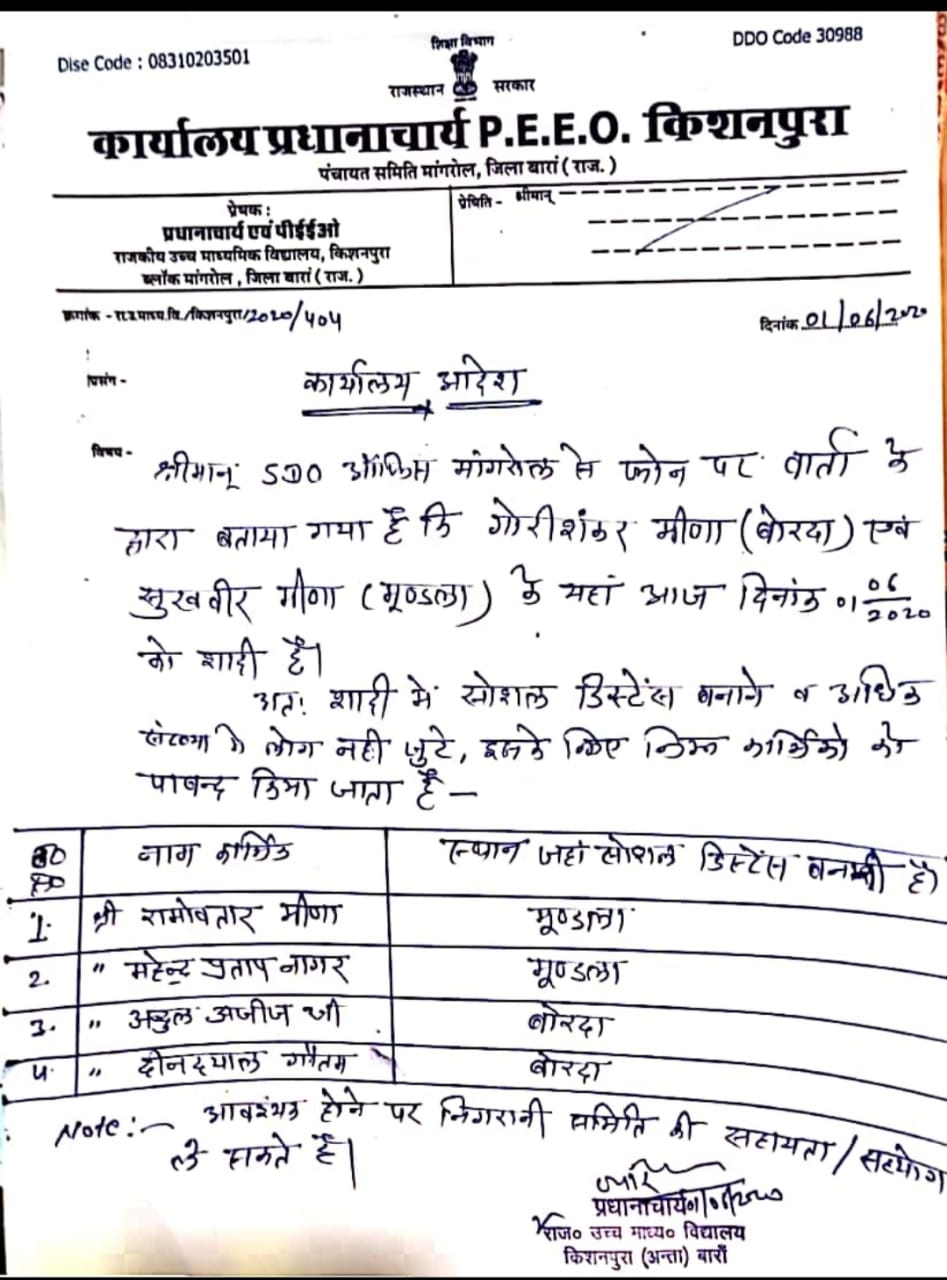 Dise Code : 08310203501
शिक्षा विभाग
DDO Code 30988
राजस्थान सरकार
कार्यालय प्रधानाचार्य P.E.E.O. किशनपुरा
पंचायत समिति मांगरोल, जिला बारां ( राज. )
प्रेषक :
प्रधानाचार्य एवं पीईईओ
राजकीय उच्च माध्यमिक विद्यालय, किशनपुरा
ब्लॉक मांगरोल , जिला बारां ( राज. )
प्रेषिति - श्रीमान्
क्रमांक - रा.उ.माध्य.वि./किशनपुरा/2020/404
दिनांक 01/06/2020
प्रसंग -
कार्यालय आदेश
विषय -
श्रीमान् SDO ऑफिस मांगरोल से फोन पर वार्ता के
द्वारा बताया गया है कि गोरीशंकर मीणा (बोरदा) एवं
सुखवीर मीणा (मूण्डला) के यहां आज दिनांक 01 06/2020
को शादी है।
अतः शादी में सोशल डिस्टेंस बनाने व अधिक
संख्या में लोग नही जुटे, इसके लिए निम्न कार्मिको को
पाबन्द किया जाता है —
क्र० सं० नाम कार्मिक स्थान जहां सोशल डिस्टेंस बनानी है।
1. श्री रामोवतार मीणा मूण्डला
2. " महेन्द्र प्रताप नागर मूण्डला
3. " अब्दुल अजीज जी बोरदा
4. " दीनदयाल गौतम बोरदा
Note :- आवश्यक होने पर निगरानी समिति की सहायता / सहयोग
ले सकते है।
प्रधानाचार्य
राज० उच्च माध्य० विद्यालय
किशनपुरा (अन्ता) बाराँ